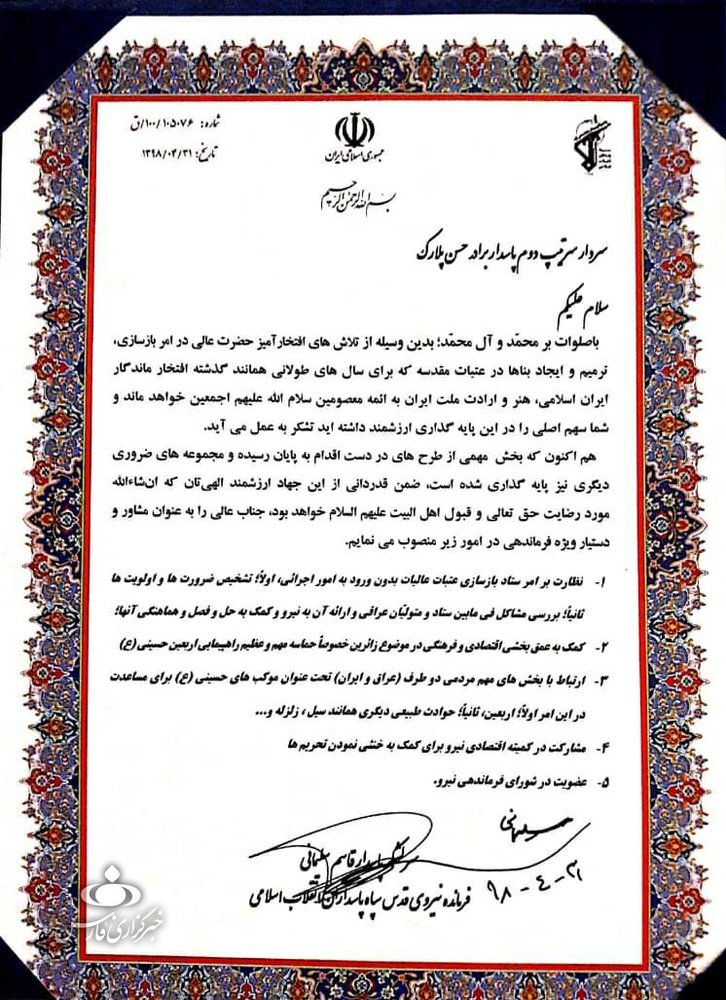 شماره: ۱۰۰/۱۰۵۰۷۶/ق
تاریخ: ۱۳۹۸/۰۴/۳۱
جمهوری اسلامی ایران
بسم الله الرحمن الرحیم
سردار سرتیپ دوم پاسدار برادر حسن پلارک
سلام علیکم
باصلوات بر محمّد و آل محمّد؛ بدین وسیله از تلاش های افتخارآمیز حضرت عالی در امر بازسازی،
ترمیم و ایجاد بناها در عتبات مقدسه که برای سال های طولانی همانند گذشته افتخار ماندگار
ایران اسلامی، هنر و ارادت ملت ایران به ائمه معصومین سلام الله علیهم اجمعین خواهد ماند و
شما سهم اصلی را در این پایه گذاری ارزشمند داشته اید تشکر به عمل می آید.
هم اکنون که بخش مهمی از طرح های در دست اقدام به پایان رسیده و مجموعه های ضروری
دیگری نیز پایه گذاری شده است، ضمن قدردانی از این جهاد ارزشمند الهی‌تان که ان‌شاءالله
مورد رضایت حق تعالی و قبول اهل البیت علیهم السلام خواهد بود، جناب عالی را به عنوان مشاور و
دستیار ویژه فرماندهی در امور زیر منصوب می نمایم.
۱- نظارت بر امر ستاد بازسازی عتبات عالیات بدون ورود به امور اجرائی، اولاً؛ تشخیص ضرورت ها و اولویت ها
ثانیاً؛ بررسی مشاکل فی مابین ستاد و متولیّان عراقی و ارائه آن به نیرو و کمک به حل و فصل و هماهنگی آنها؛
۲- کمک به عمق بخشی اقتصادی و فرهنگی در موضوع زائرین خصوصاً حماسه مهم و عظیم راهپیمایی اربعین حسینی (ع)
۳- ارتباط با بخش های مهم مردمی دو طرف (عراق و ایران) تحت عنوان موکب های حسینی (ع) برای مساعدت
در این امر اولاً؛ اربعین، ثانیاً؛ حوادث طبیعی دیگری همانند سیل ، زلزله و...
۴- مشارکت در کمیته اقتصادی نیرو برای کمک به خنثی نمودن تحریم ها
۵- عضویت در شورای فرماندهی نیرو.
سلیمانی
سرلشکر پاسدار قاسم سلیمانی
فرمانده نیروی قدس سپاه پاسداران انقلاب اسلامی
۹۸-۴-۳۱
خبرگزاری فارس